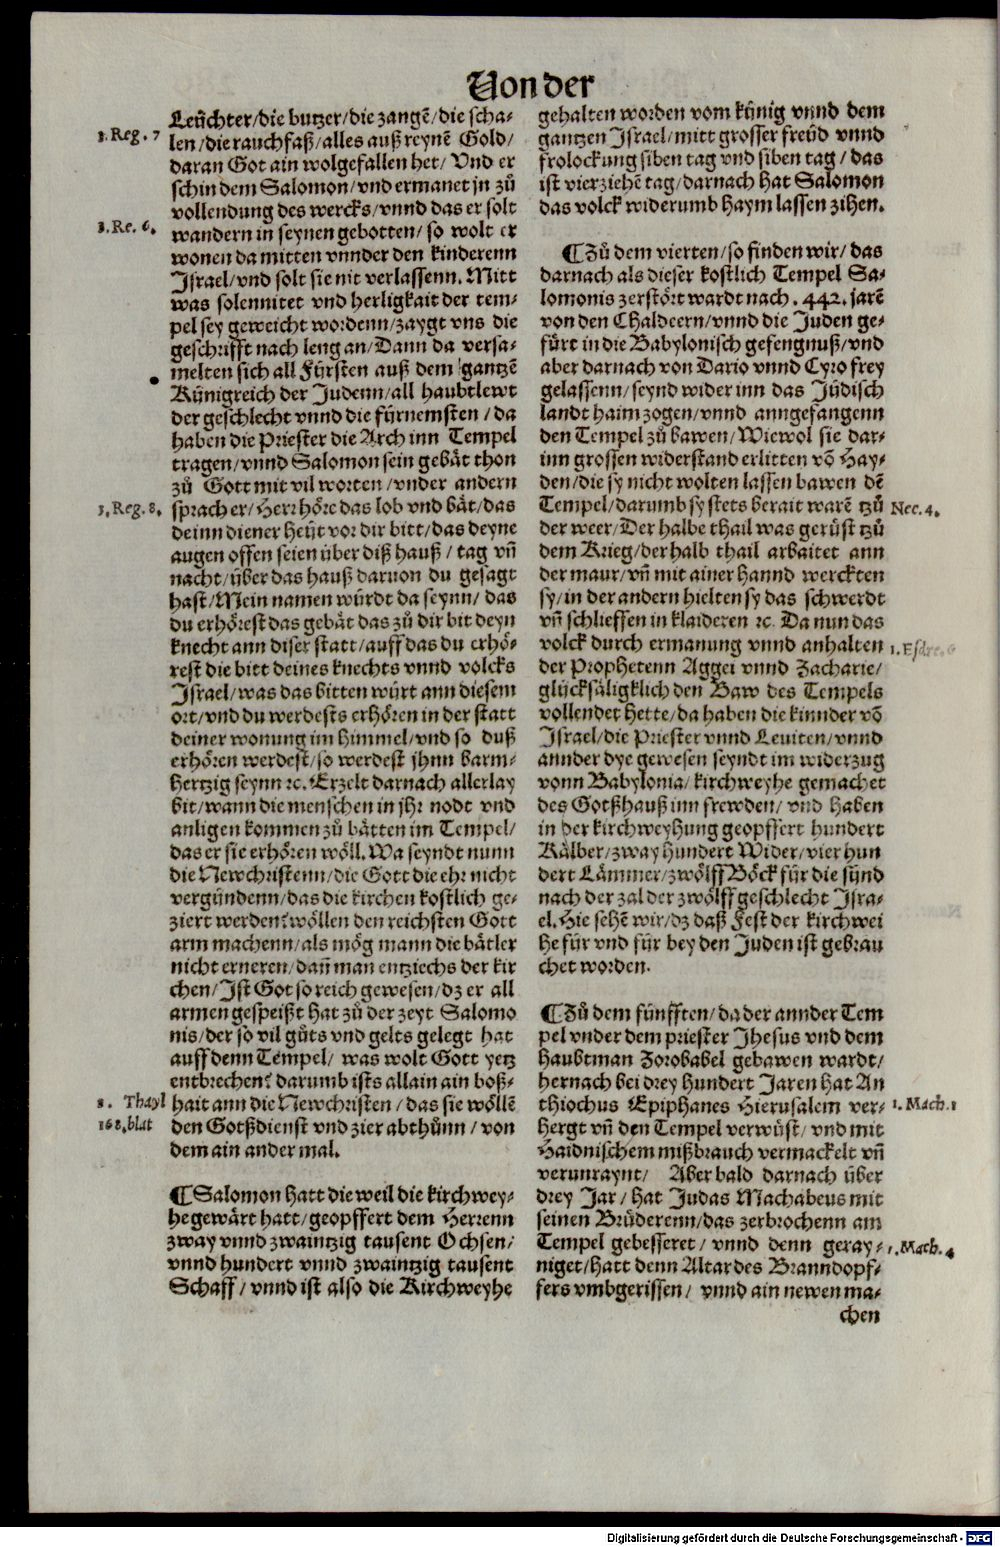 Von der
Leüchter/die butzer/die zangē/die scha-
3. Reg. 7
len/die rauchfaß/alles auß reynē Gold/
daran Got ain wolgefallen het/ Vnd er
schin dem Salomon/vnd ermanet jn zů
vollendung des wercks/vnnd das er solt
3. Re. 6.
wandern in seynen gebotten/ so wolt er
wonen da mitten vnnder den kinderenn
Jsrael/vnd solt sie nit verlassenn. Mitt
was solennitet vnd herligkait der tem-
pel sey geweicht wordenn/zaygt vns die
geschrifft nach leng an/Dann da versa-
melten sich all Fürsten auß dem gantzē
Künigreich der Judenn/all haubtlewt
der geschlecht vnnd die fürnemsten/da
haben die Priester die Arch inn Tempel
tragen/vnnd Salomon sein gebät thon
zů Gott mit vil worten/vnder andern
3. Reg. 8.
sprach er/Herr höre das lob vnd bät/das
deinn diener heüt vor dir bitt/das deyne
augen offen seien über diß hauß/ tag vn̄
nacht/über das hauß daruon du gesagt
hast/Mein namen würdt da seynn/das
du erhörest das gebät das zů dir bit deyn
knecht ann diser statt/auff das du erhö-
rest die bitt deines knechts vnnd volcks
Jsrael/was das bitten würt ann diesem
ort/vnd du werdests erhören in der statt
deiner wonung im himmel/vnd so duß
erhören werdest/so werdest jhnn barm-
hertzig seynn ⁊c. Erzelt darnach allerlay
bit/wann die menschen in jhr nodt vnd
anligen kommen zů bätten im Tempel/
das er sie erhören wöll. Wa seyndt nunn
die Newchristenn/die Gott die ehr nicht
vergündenn/das die kirchen kostlich ge-
ziert werden? wöllen den reichsten Gott
arm machenn/als mög mann die bätler
nicht erneren/dan̄ man entziechs der kir
chen/Jst Got so reich gewesen/dz er all
armen gespeißt hat zů der zeyt Salomo
nis/der so vil gůts vnd gelts gelegt hat
auff denn Tempel/ was wolt Gott yetz
entbrechen? darumb ists allain ain boß-
3. Thayl
hait ann die Newchristen/das sie wöllē
168.blat
den Gotßdienst vnd zier abthůnn/von
dem ain ander mal.
¶Salomon hatt die weil die kirchwey-
he gewärt hatt/geopffert dem Herrenn
zway vnnd zwaintzig tausent Ochsen/
vnnd hundert vnnd zwaintzig tausent
Schaff/ vnnd ist also die Kirchweyhe
gehalten worden vom künig vnnd dem
gantzen Jsrael/mitt grosser freüd vnnd
frolockung siben tag vnd siben tag/das
ist vierziehē tag/darnach hat Salomon
das volck widerumb haym lassen zihen.
¶Zů dem vierten/so finden wir/das
darnach als dieser kostlich Tempel Sa-
lomonis zerstört wardt nach .442. jarē
von den Chaldeern/vnnd die Juden ge-
fürt in die Babylonisch gefengnuß/vnd
aber darnach von Dario vnnd Cyro frey
gelassenn/seynd wider inn das Jüdisch
landt haim zogen/vnnd anngefangenn
den Tempel zů bawen/Wiewol sie dar-
inn grossen widerstand erlitten vō Hay-
den/die sy nicht wolten lassen bawen dē
Tempel/darumb sy stets berait warē tzů
Nee. 4.
der weer/Der halbe thail was gerüst tzů
dem Krieg/der halb thail arbaitet ann
der maur/vn̄ mit ainer hannd werckten
sy/in der andern hielten sy das schwerdt
vn̄ schlieffen in klaideren ⁊c. Da nun das
volck durch ermanung vnnd anhalten
1. Esdre. 6
der Prophetenn Aggei vnnd Zacharie/
glücksäligklich den Baw des Tempels
vollendet hette/da haben die kinnder vō
Jsrael/die Priester vnnd Leuiten/vnnd
annder dye gewesen seyndt im widerzug
vonn Babylonia/kirchweyhe gemachet
des Gotßhauß inn frewden/ vnd haben
in der kirchweyhung geopffert hundert
Kälber/zway hundert Wider/vier hun
dert Lämmer/zwölff Böck für die sünd
nach der zal der zwölff geschlecht Jsra-
el. Hie sehē wir/dz daß Fest der kirchwei
he für vnd für bey den Juden ist gebrau
chet worden.
¶Zů dem fünfften/da der annder Tem
pel vnder dem priester Jhesus vnd dem
haubtman Zorobabel gebawen wardt/
hernach bei drey hundert Jaren hat An
thiochus Epiphanes Hierusalem ver-
1. Mach. 1
hergt vn̄ den Tempel verwüst/ vnd mit
Haidnischem mißbrauch vermackelt vn̄
verunraynt/ Aber bald darnach über
drey Jar/ hat Judas Machabeus mit
seinen Brüderenn/das zerbrochenn am
Tempel gebesseret/ vnnd denn geray-
1. Mach. 4
niget/hatt denn Altar des Branndopf-
fers vmbgerissen/ vnnd ain newen ma-
chen
Digitalisierung gefördert durch die Deutsche Forschungsgemeinschaft - DFG